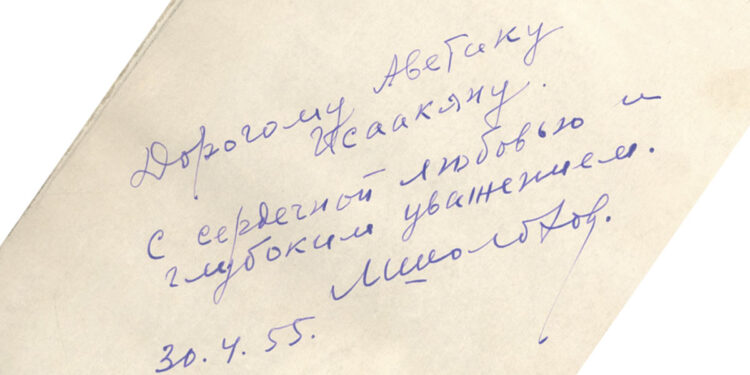 Дорогому Аветику
Исаакяну.
С сердечной любовью и
глубоким уважением.
МШолохов.
30.4.55.